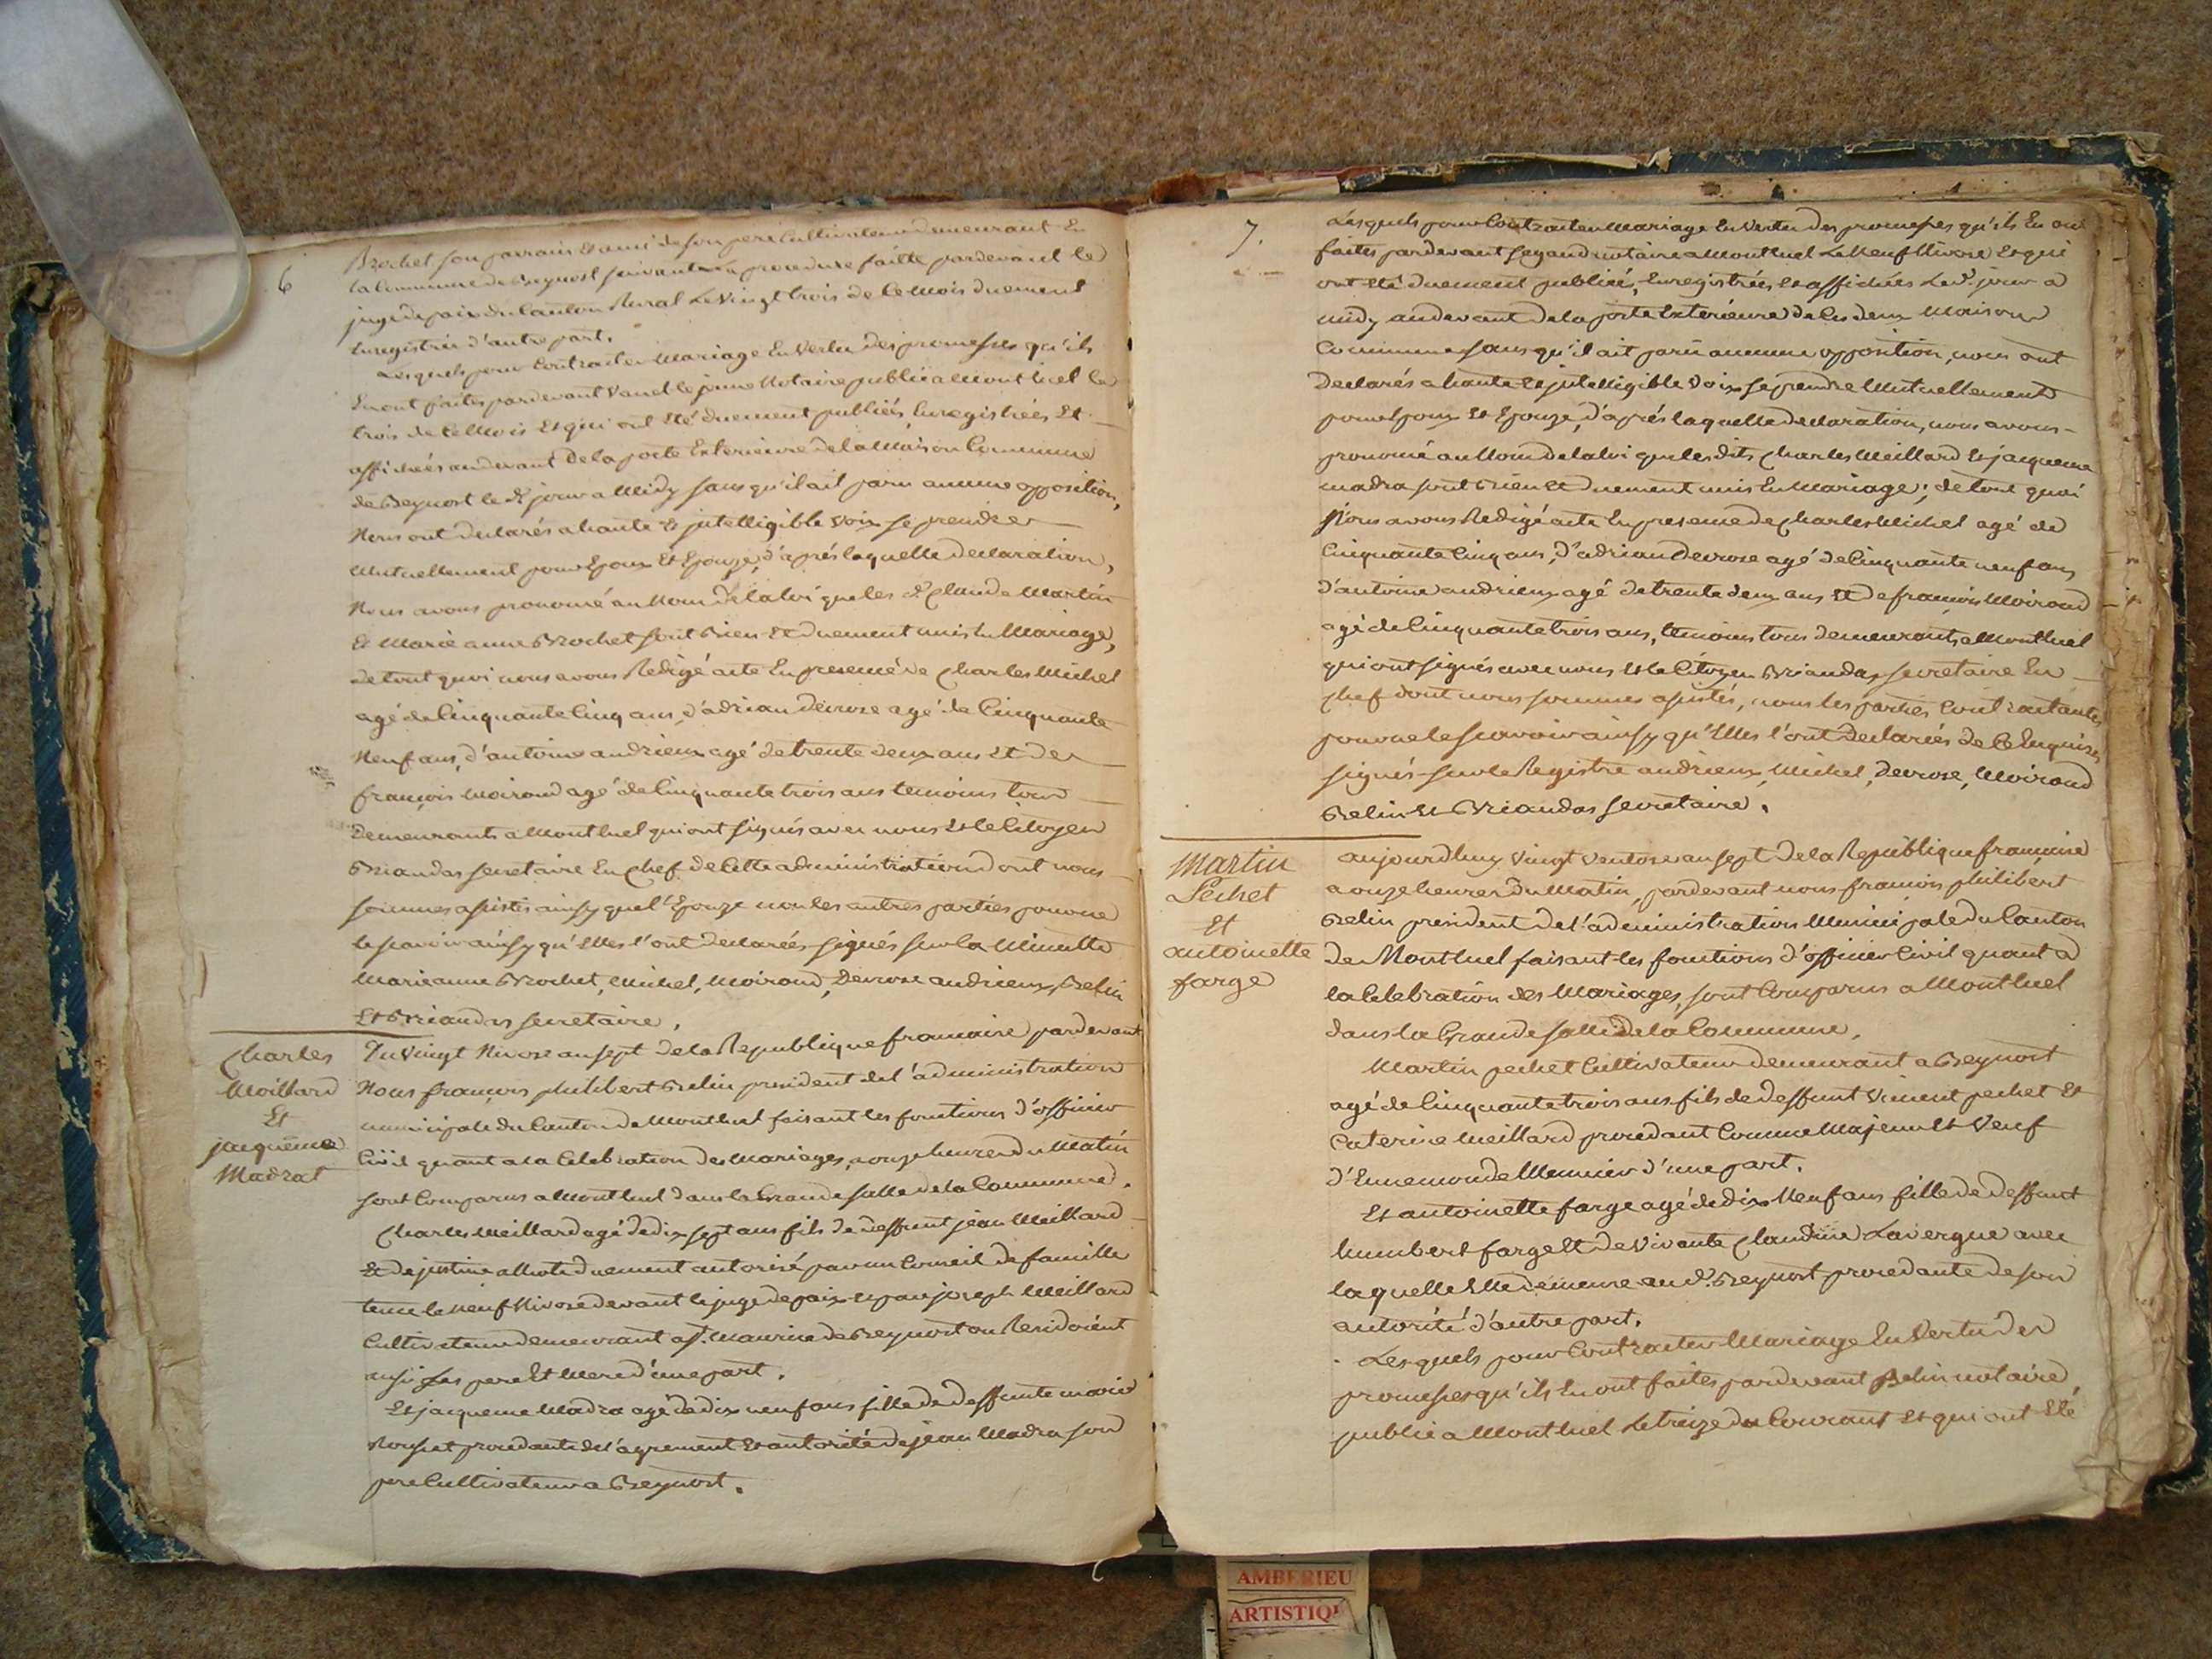 6
Brochet son parrain et ami de son pere Cultivateur demeurant En
la Commune de Beynost suivant la procedure faitte pardevant le
juge de paix du Canton Rural Le vingt trois de Ce Mois duement
Enregistrée d'autre part.
Lesquels pour Contracter Mariage En Vertu des promesses qu'ils
En ont faites pardevant Vanel le jeune Notaire public a Montluel le
trois de Ce Mois Et qui ont Eté duement publiées, Enregistrées Et
affichées audevant De la porte Exterieure de la Maison Commune
de Beynost le dt jour a Midy sans qu'il ait paru aucune opposition,
Nous ont declarés a haute Et jntelligible voix se prendre
Mutuellement pour Epoux Et Epouze, d'aprés laquelle declaration,
Nous avons prononcé au Nom de la loi que les dt Claude Martin
Et Marie anne Brochet sont Bien Et duement unis En Mariage,
de tout quoi nous avons Redigé acte En presence de Charles Michel
agé de Cinquante Cinq ans, d'adrian Devroze agé de Cinquante
Neuf ans, d'antoine andrieux agé de trente deux ans Et de
françois Moiroud agé de Cinquante trois ans temoins tous
Demeurants a Montluel qui ont signés avec nous Et le Citoyen
Briandas secretaire En Chef de Cette administration dont nous
sommes assistés ainsy que l'Epouze non les autres parties pour ne
le scavoir ainsy qu'Elles l'ont declarées signés sur la Minutte
Marianne Brochet, Michel, Moiroud, Devroze andrieux, Belin
Et Briandas secretaire.
Charles
Meillard
Et
jacquême
Madrat
Du Vingt Nivose an sept de la Republique francaise pardevant
Nous françois philibert Belin president de l'administration
municipale du Canton de Montluel faisant les fonctions d'officier
Civil quant a la Celebration des Mariages, a onze heures du Matin
sont Comparus a Montluel dans la Grande salle de la Commune.
Charles Meillard agé de dix sept ans fils de deffunt jean Meillard
Et de justine duement autorisé par un Conseil de famille
tenu le neuf Nivose devant le juge de paix Et par joseph Meillard
Cultivateur demeurant a St. Maurice de Beynost ou Residoient
aussi Les pere Et Mere d'une part.
Et jacqueme Madra agé de dix neuf ans fille de deffunte marie
procedante de l'agrement Et autorité de jean Madra son
pere Cultivateur a Beynost.
7.
Lesquels pour Contracter Mariage En Vertu des promesses qu'ils En ont
faites pardevant Segaud notaire a Montluel Le Neuf Nivose Et qui
ont Eté duement publiées, Enregistrées Et affichées Le dt. jour a
midy audevant De la porte Extérieure de les deux Maisons
Communes sans qu'il ait paru aucune opposition, nous ont
Declarés a haute Et jntelligible Voix se prendre Mutuellement
pour Epoux Et Epouze, d'aprés laquelle declaration, nous avons
prononcé au Nom de la loi que les dits Charles Meillard Et jacqueme
madra sont Bien Et duement unis En Mariage; de tout quoi
Nous avons Redigé acte En presence de Charles Michel agé de
Cinquante Cinq ans, d'adrian Devroze agé de Cinquante neuf ans,
d'antoine andrieux agé de trente deux ans Et de françois Moiroud
agé de Cinquante trois ans, temoins tous demeurants a Montluel
qui ont signés avec nous Et le Citoyen Briandas secretaire En
Chef dont nous sommes assistés, nous les parties Contractantes
pour ne le scavoir ainsy qu'Elles l'ont Declarées de Ce Enquises
signés sur le Registre andrieux, Michel, Devroze, Moiroud
Belin Et Briandas secretaire.
Martin
Pechet
Et
antoinette
farge
aujourdhuy Vingt Ventose an sept de la République francaise
a onze heures Du Matin, pardevant nous francois philibert
Belin president de l'administration Municipale du Canton
de Montluel faisant les fonctions d'officier Civil quant a
la Celebration des Mariages, sont Comparus a Montluel
dans la Grande salle de la Commune.
Martin pechet Cultivateur demeurant a Beynost
agé de Cinquante trois ans fils de deffunt Vincent pechet Et
Caterine Meillard procedant Comme Majeur Et Veuf
d'Ennemonde Meunier d'une part.
Et antoinette farge agé de dix Neuf ans fille de deffunt
humbert farge Et de Vivante Claudine Lavergne avec
laquelle Elle demeure au dt. Beynost procedante de son
autorité d'autre part.
Lesquels pour Contracter Mariage En Vertu des
promesses qu'ils En ont faites pardevant Belin notaire
public a Montluel Le treize du Courant Et qui ont Eté
AMBERIEU
ARTISTIQ